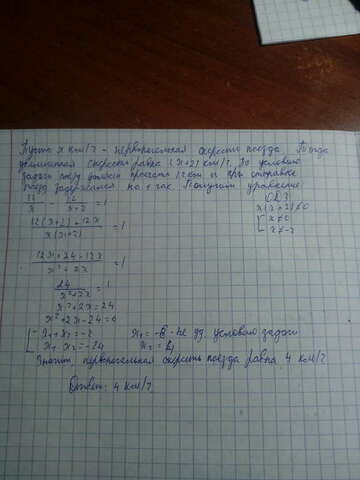 Пусть x км/ч - первоначальная скорость поезда. Тогда
увеличенная скорость равна (x+2) км/ч. По условию
задачи поезд должен проехать 12 км и при отправке
поезд задержался на 1 час. Получим уравнение
12/x - 12/x+2 = 1 ОДЗ
12(x+2)-12x / x(x+2) = 1 x(x+2)≠0
x≠0
x≠-2
12x+24-12x / x²+2x = 1
24 / x²+2x = 1
x²+2x=24
x²+2x-24=0
x₁+x₂=-2 x₁=-6 - не уд. условию задачи
x₁·x₂=-24 x₂=4
Значит первоначальная скорость поезда равна 4 км/ч
Ответ: 4 км/ч